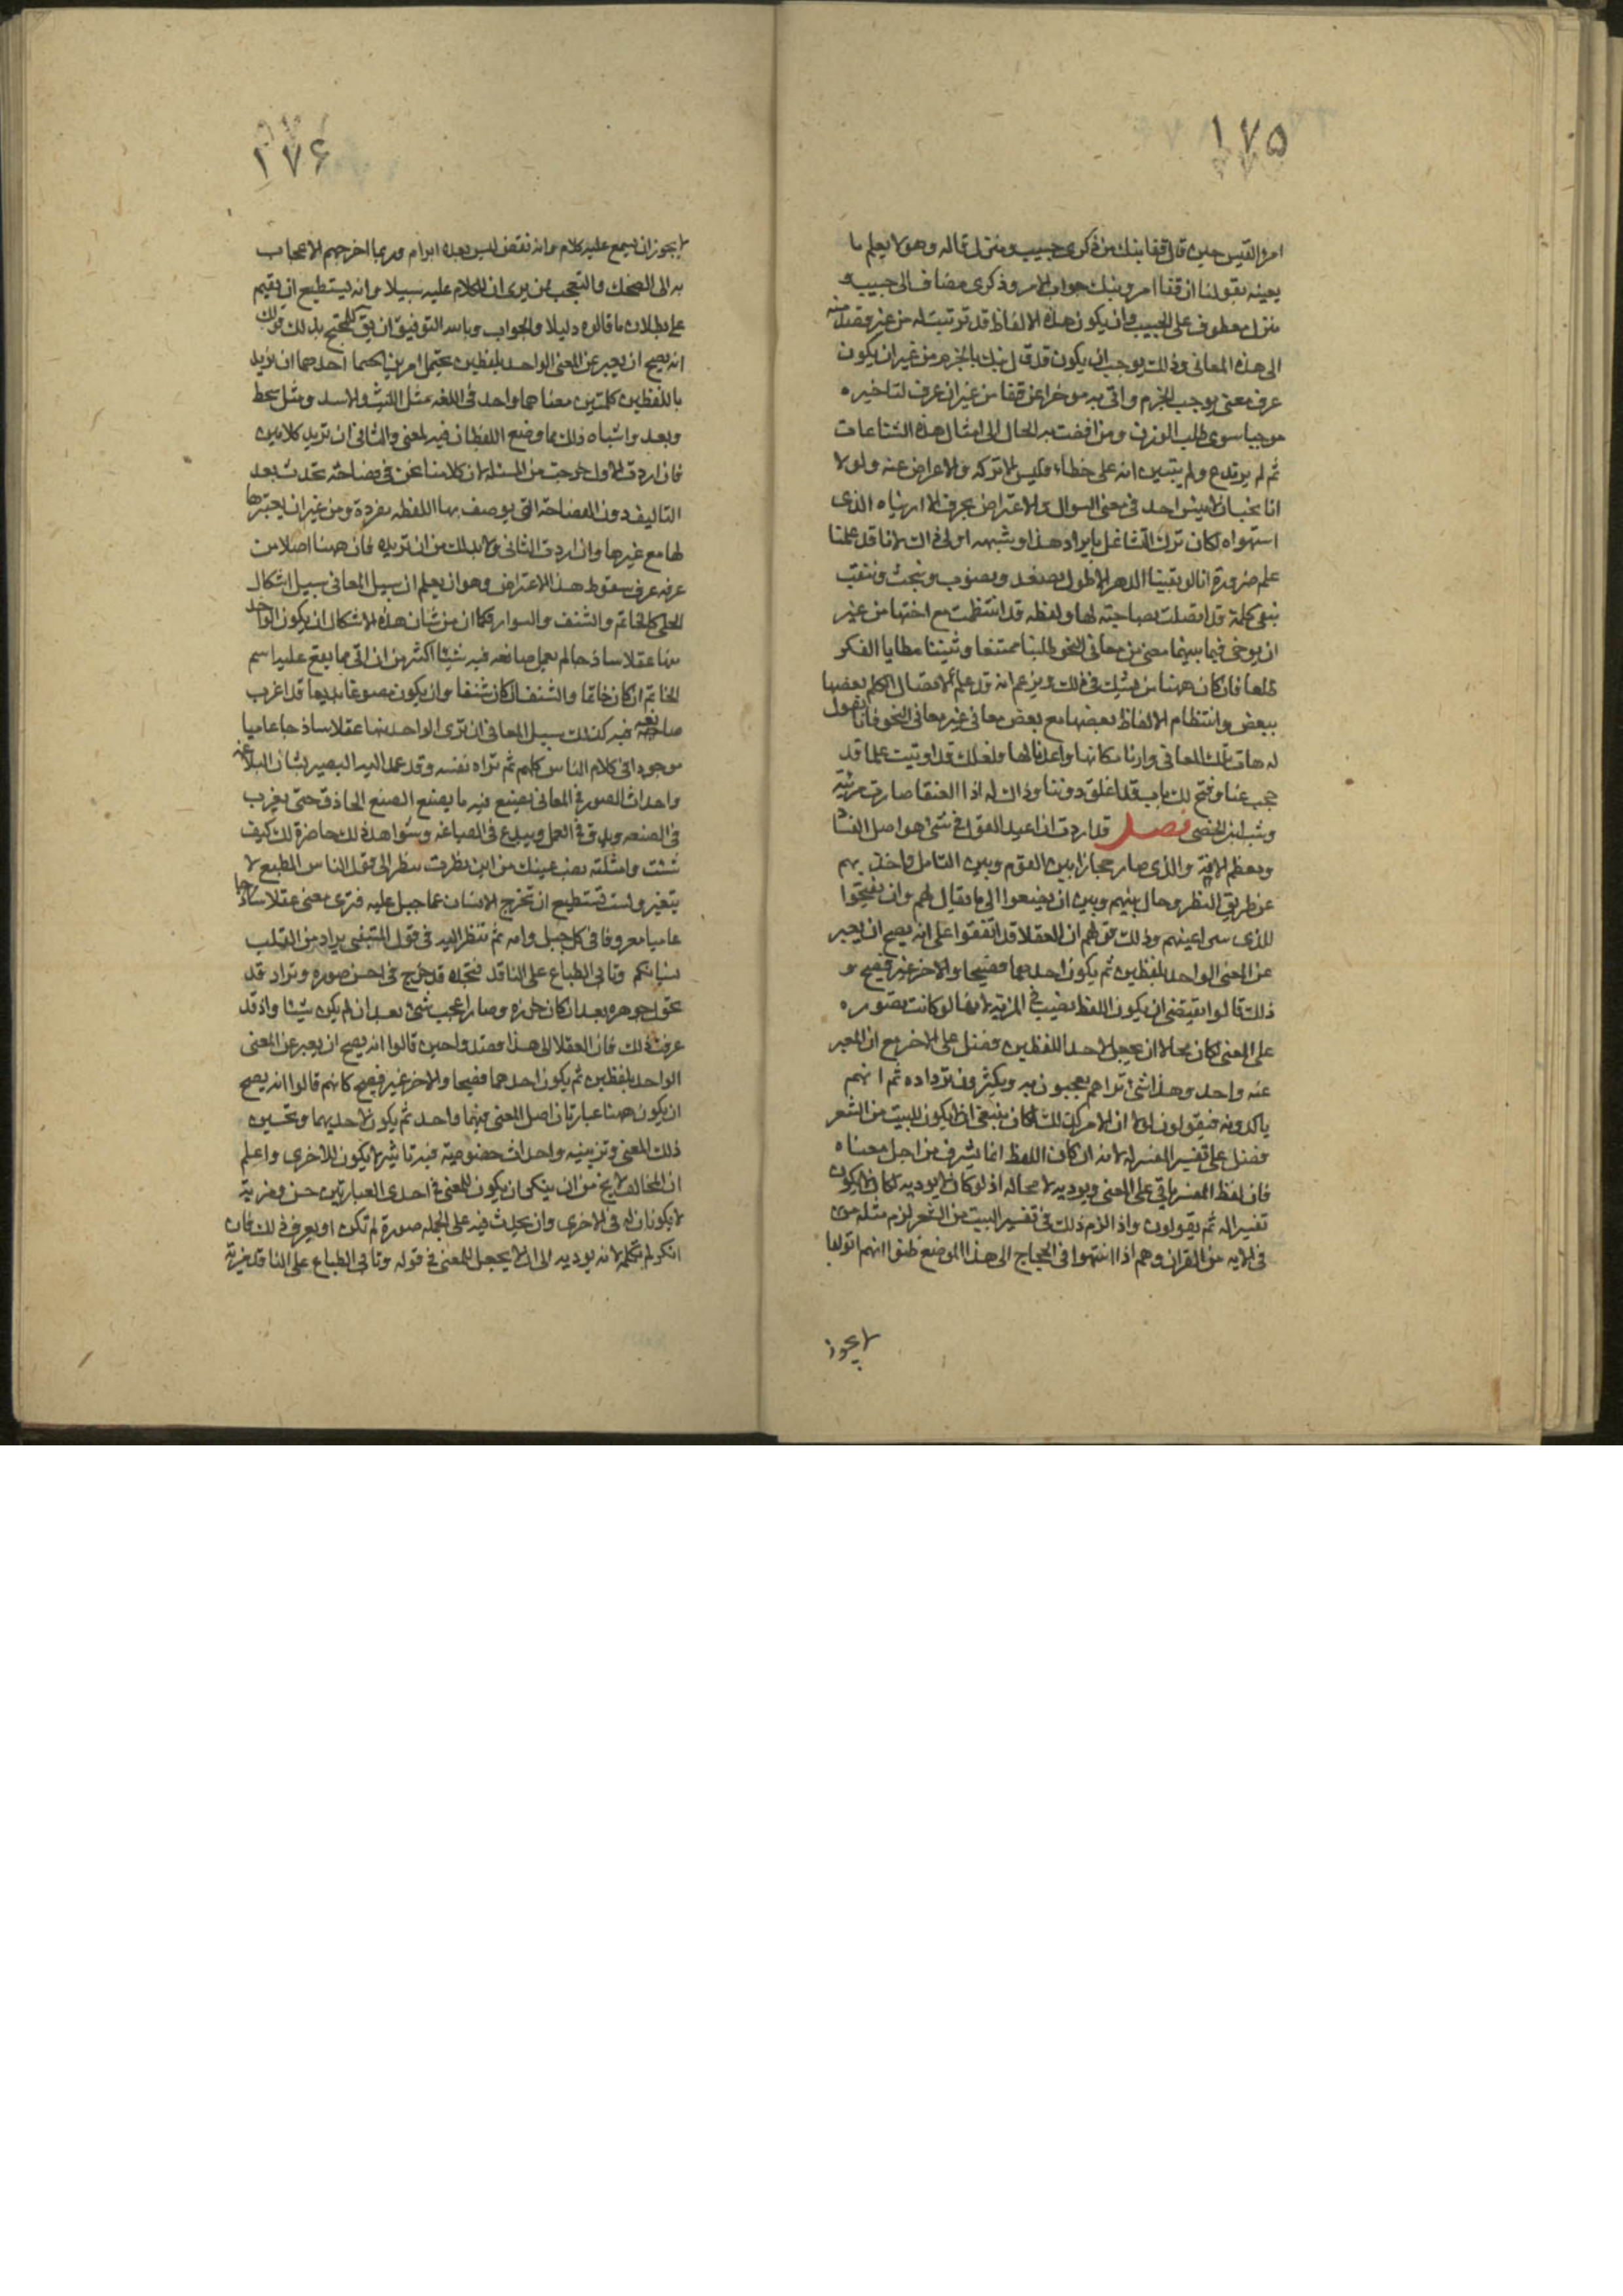 ١٧٥
امرؤ القيس حين قال قفا نبك من ذكرى حبيب ومنزل قاله وهو لا يعلم ما
يعينه بقولنا ان قفا امر ونبك جواب الامر وذكرى مضاف الى حبيب و
منزل معطوف على الحبيب وان يكون هذه الالفاظ قد ترتبت له من غير قصد منه
الى هذه المعانى وذلك يوجب ان يكون قد قال نبك بالجزم من غير ان يكون
عرف معنى يوجب الجزم واتى به موخرا عن قفا من غير ان عرف لتاخيره
موجبا سوى طلب الوزن ومن افضت به الحال الى امثال هذه الشناعات
ثم لم يرتدع ولم يتبين انه على خطاء فليس الا تركه والاعراض عنه ولولا
انا نحب ان لا ينبس احد فى معنى السوال والاعتراض بحرف الا اريناه الذى
استهواه لكان ترك التشاغل بايراد هذا وشبهه اولى ذاك لانا قد علمنا
علم ضرورة انا لو بقينا الدهر الاطول نصعد ونصوب ونبحث وننقب
نبغى كلمة قد اتصلت بصاحبة لها ولفظه قد انتظمت مع اختها من غير
ان توخى فيما بينهما معنى من معانى النحو طلبنا ممتنعا وثنينا مطايا الفكر
ظلعا فان كان ههنا من يشك فى ذلك ويزعم انه قد علم لاتصال الكلم بعضها
ببعض وانتظام الالفاظ بعضها مع بعض معانى غير معانى النحو فانا نقول
له هات تلك المعانى وارنا مكانها واهدنا لها ولعلك قد اوتيت علما قد
حجب عنا وفتح لك باب قد اغلق دوننا وذاك له اذا العنقا صارت مربية
وشب ابن الخصى فصل قد اردت ان اعيد القول فى شئ هو اصل الفساد
ومعظم الافة والذى صار حجازا بين القوم وبين التامل واخذ بهم
عن طريق النظر وحال بينهم وبين ان يصغوا الى ما يقال لهم وان يفتحوا
للذى اعينهم وذلك قولهم ان العقلا قد اتفقوا على انه يصح ان يعبر
عن المعنى الواحد بلفظين ثم يكون احدهما فصيحا والاخر غير فصيح و
ذلك قالوا يقتضى ان يكون اللفظ نصيب فى المزية لانها لو كانت مقصوره
على المعنى لكان محالا ان يجعل لاحد اللفظين فضل على الاخر مع ان المعبر
عنه واحد وهذا شئ تراهم يعجبون به ويكثرون ترداده ثم انهم
ياكدونه فيقولون لولا ان الامر كذلك لكان ينبغى ان لا يكون للبيت من الشعر
فضل على تفسير المفسر له لانه ان كان اللفظ انما يشرف من اجل معناه
فان لفظ المفسر ياتى على المعنى ويوديه لا محاله اذ لو كان لا يوديه لكان لا يكون
تفسيرا له ثم يقولون واذ الزم ذلك فى تفسير البيت من الشعر لزم مثله من
فى الايه من القران وهم اذا انتهوا فى الحجاج الى هذا الموضع ظنوا انهم اتوا بما
لا يجوز
١٧٦
لا يجوز ان يسمع عليه كلام وانه نقض ليس بعده ابرام وربما اخرجهم الاعجاب
به الى الضحك والتعجب ممن يرى ان للكلام عليه سبيلا وانه يستطيع ان يقيم
على بطلان ما قالوه دليلا والجواب وبالله التوفيق ان يق للمحتج بذلك قولك
انه يصح ان يعبر عن المعنى الواحد بلفظين يحتمل امرين احدهما ان تريد
باللفظين كلمتين معناهما واحد فى اللغه مثل الليث والاسد ومثل شحط
وبعد واشباه ذلك مما وضع اللفظان فيه لمعنى والثانى ان تريد كلامين
فان اردت الاول خرجت من المسئله لان كلامنا نحن فى فصاحة تحدث بعد
التاليف دون الفصاحة التى يوصف بها اللفظه مفردة ومن غير ان يعتبر
لها مع غيرها وان اردت الثانى ولا بد لك من ان تريده فان ههنا اصلا من
عرفه عرف سقوط هذا الاعتراض وهو ان يعلم ان سبيل المعانى سبيل اشكال
الحلى كالخاتم والشنف والسوار فكما ان من شان هذه الاشكال ان يكون الواحد
منها عقلا ساذجا لم يعمل صانعه فيه شيئا اكثر من ان اتى بما يقع عليه اسم
الخاتم ان كان خاتما والشنف ان كان شنفا وان يكون مصوغا بديعا قد اغرب
صانعه فيه كذلك سبيل المعانى ان ترى الواحد منها عقلا ساذجا عاميا
موجودا فى كلام الناس كلهم ثم تراه نفسه وقد عمد اليه البصير بشان البلاغه
واحداث الصور فى المعانى فيصنع فيه ما يصنع الصنع الحاذق حتى يغرب
فى الصنعه ويدق فى العمل ويبدع فى الصياغه وشواهد ذلك حاضرة لك كيف
شئت وامثلته نصب عينيك من اين نظرت تنظر الى قول الناس الطبع لا
يتغير ولست تستطيع ان تخرج الانسان عما جبل عليه فترى معنى عقلا ساذجا
عاميا معروفا فى كل جيل وامه ثم تنظر اليه فى قول المتنبى يراد من القلب
نسيانكم وتابى الطباع على الناقل فتجده قد خرج فى احسن صوره وتراه قد
تحول جوهره بعد ان كان خرزه وصار اعجب شئ بعد ان لم يكن شيئا واذ قد
عرفت ذلك فان العقلا الى هذا قصدوا حين قالوا انه يصح ان يعبر عن المعنى
الواحد بلفظين ثم يكون احدهما فصيحا والاخر غير فصيح كانهم قالوا انه يصح
ان يكون ههنا عبارتان اصل المعنى فيهما واحد ثم يكون لاحديهما وتحسين
ذلك المعنى وتزيينه واحداث خصوصية فيه تاثير لا يكون للاخرى واعلم
ان المخالف لا يخ من ان ينكر ان يكون للمعنى فى احدى العبارتين حسن ومزية
لا يكونان له فى الاخرى وان يحدث فيه على الجمله صورة لم تكن او يعرف ذلك فان
انكر لم يكلم لانه يوديه الى ان لا يجعل للمعنى فى قوله وتابى الطباع على الناقل مزية